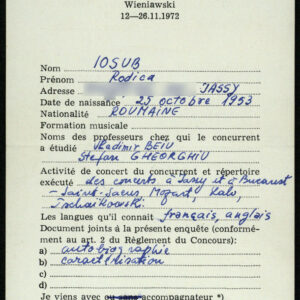 Wieniawski
12—26.11.1972
Nom IOSUB
Prénom Rodica
Adresse JASSY
Date de naissance 25 octobre 1953
Nationalité ROUMAINE
Formation musicale
Noms des professeurs chez qui le concurrent
a étudié Vladimir BEIU
Stefan GHEORGHIU
Activité de concert du concurrent et répertoire
exécuté des concerts à Jassy et à Bucarest
- Saint-Saëns, Mozart, Lalo,
Tschaikowski
Les langues qu'il connait français, anglais
Document joints à la présente enquête (conformé-
ment au art. 2 du Règlement du Concours):
a) autobiographie
b) caractérisation
c)
d)
Je viens avec ou sans accompagnateur *)